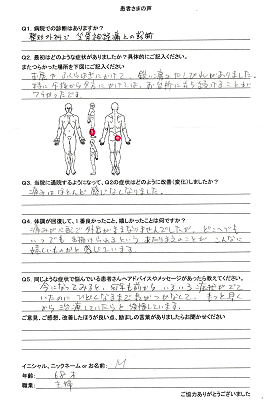 患者さまの声
Q1. 病院での診断はありますか？
整形外科で 坐骨神経痛との診断
Q2. 最初はどのような症状がありましたか？具体的にご記入ください。
またつらかった場所を下図にご記入ください
お尻から ふくらはぎにかけて、鋭い痛みやしびれがありました。
特に午後から夕方にかけては、お台所に立ち続けることが
つらかったです。
Q3. 当院に通院するようになって、Q2の症状はどのように改善(変化)しましたか？
痛みはほとんど感じなくなりました。
Q4. 体調が回復して、1番良かったこと、嬉しかったことは何ですか？
痛みが心配で 外出がままなりませんでしたが、どこへでも
いつでも 出掛けられるという あたりまえのことが こんなに
嬉しいものかと感じています。
Q5. 同じような症状で悩んでいる患者さんへアドバイスやメッセージがあったら教えてください。
今になってみると、何年も前から いろいろ症状がでて
いたのに ひどくなるまで気がつかなくて、もっと早く
から治療していたらと後悔しています。
ご意見、ご感想、改善したほうが良い点、励ましの言葉がありましたらお聞かせください
イニシャル、ニックネーム or お名前： M
年齢：
職業： 主婦
ご協力ありがとうございました